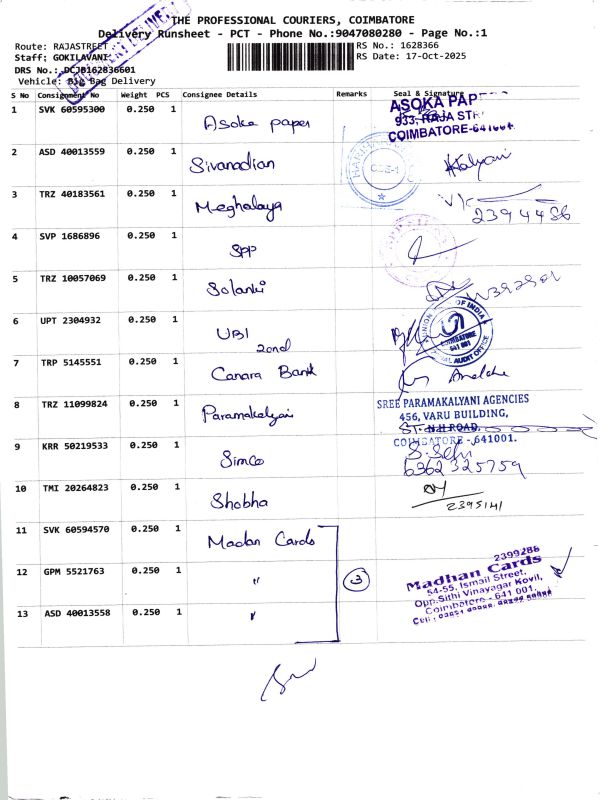 THE PROFESSIONAL COURIERS, COIMBATORE
Delivery Runsheet - PCT - Phone No.:9047080280 - Page No.:1
Route: RAJASTREET
RS No.: 1628366
Staff: GOKILAVANI
RS Date: 17-Oct-2025
DRS No.: DCJB162836601
Vehicle: Big Bag Delivery
S No Consignment No Weight PCS Consignee Details Remarks Seal & Signature
1 SVK 60595300 0.250 1 Asoka paper
ASOKA PAP
933, RAJA STR
COIMBATORE-641001
2 ASD 40013559 0.250 1 Sivanadian Kalyani
3 TRZ 40183561 0.250 1 Meghalaya
2394486
4 SVP 1686896 0.250 1 SPP
5 TRZ 10057069 0.250 1 Solanki
6 UPT 2304932 0.250 1 UBI
zonal
UNION OF INDIA
COIMBATORE
641 001
AUDIT OFFICE
7 TRP 5145551 0.250 1 Canara Bank
8 TRZ 11099824 0.250 1 Paramakalyani
SREE PARAMAKALYANI AGENCIES
456, VARU BUILDING,
ST. N.H ROAD,
COIMBATORE - 641001.
9 KRR 50219533 0.250 1 Simco
6362325759
10 TMI 20264823 0.250 1 Shobha
2395141
11 SVK 60594570 0.250 1 Madan Cards
12 GPM 5521763 0.250 1 〃 3
2399286
Madhan Cards
54-55, Ismail Street,
Opp.Sithi Vinayagar Kovil,
Coimbatore - 641 001.
13 ASD 40013558 0.250 1 〃